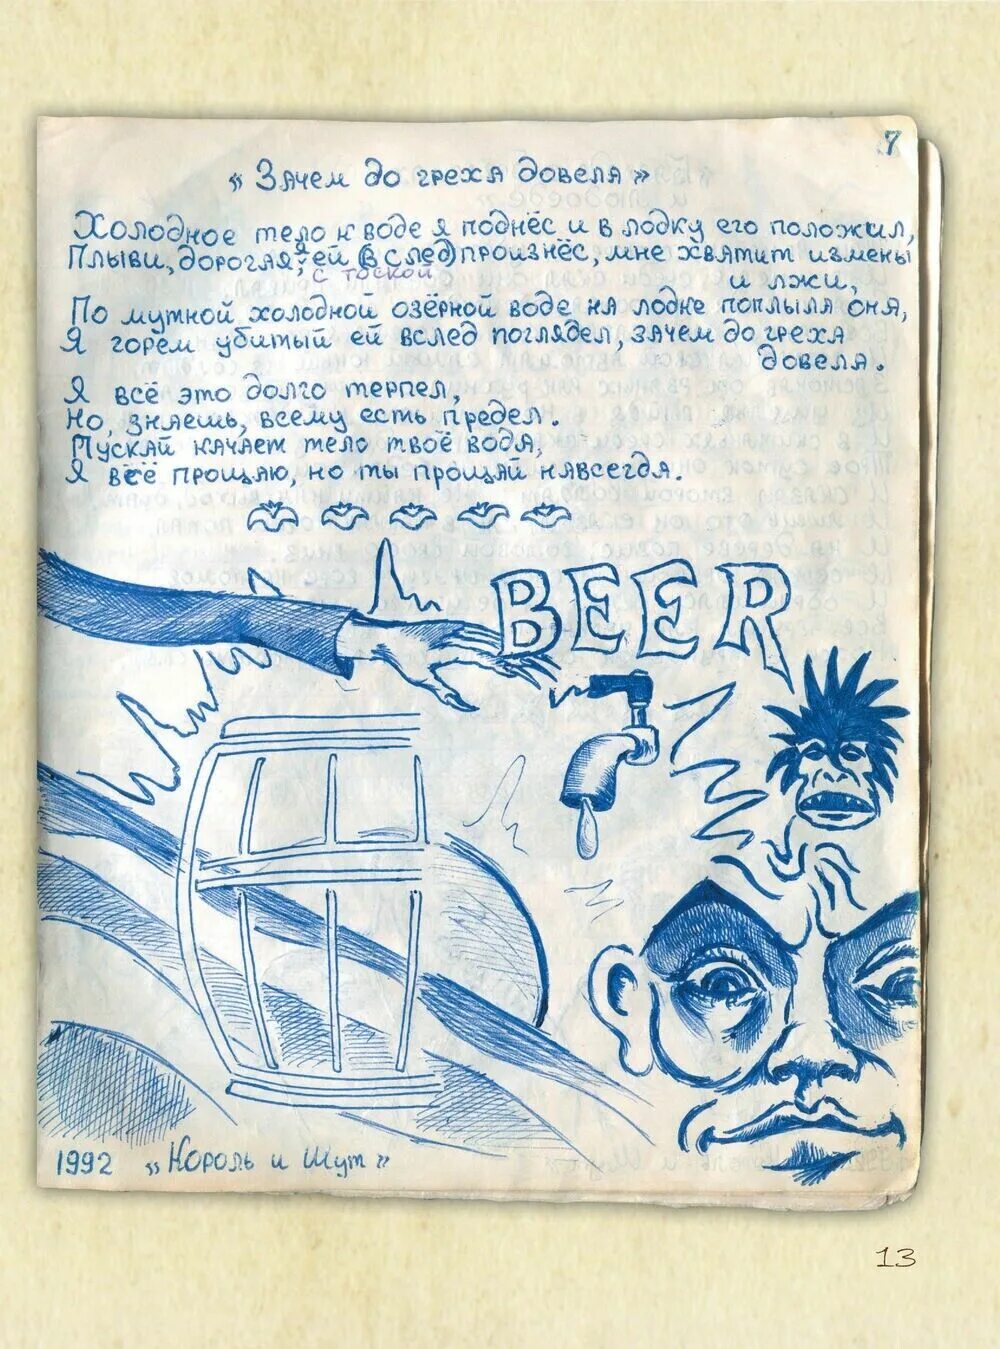 7
« Зачем до греха довела »
Холодное тело к воде я поднёс и в лодку его положил,
Плыви, дорогая, ей (вслед) произнёс, мне хватит измены
с тоской
и лжи,
По мутной холодной озёрной воде на лодке поплыла она,
Я горем убитый ей вслед поглядел, зачем до греха
довела.
Я всё это долго терпел,
Но, знаешь, всему есть предел.
Пускай качает тело твоё вода,
Я всё прощаю, но ты прощай навсегда.
BEER
1992 „Король и Шут"
13